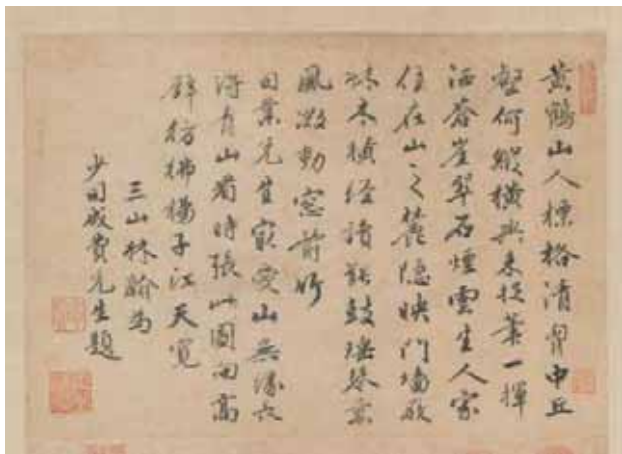 黃鶴山人標格清胷中丘
壑何縱橫興來捉筆一揮
洒蒼崖翠石煙雲生人家
住在山之麓隱映門墻欹
踈木橫經讀罷鼓瑤琴
風微動窓前竹
司業先生寂愛山無緣
得山看時張此圖向高
壁彷彿楊子江天寬
三山林瀚為
少司成費先生題